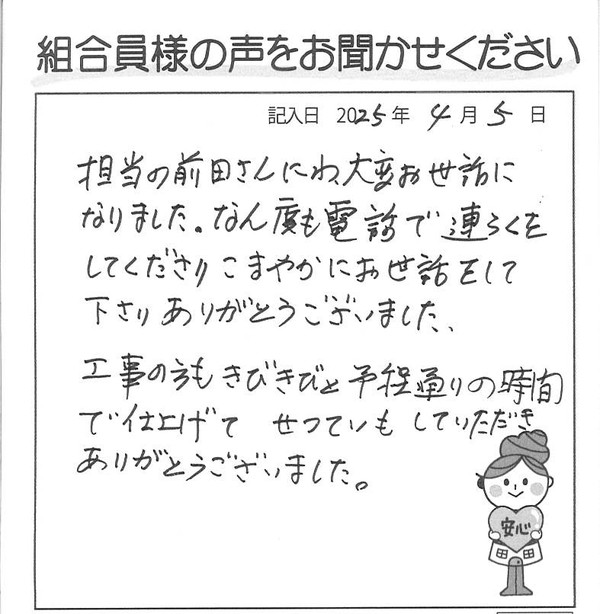 組合員様の声をお聞かせください
記入日 2025年 4月 5日
担当の前田さんにわ、大変お世話に
なりました。なん度も電話で連らくを
してくださりこまやかにお世話をして
下さりありがとうございました、
工事の方もきびきびと予程通りの時間
で仕上げて せつていもしていただき
ありがとうございました。
安心